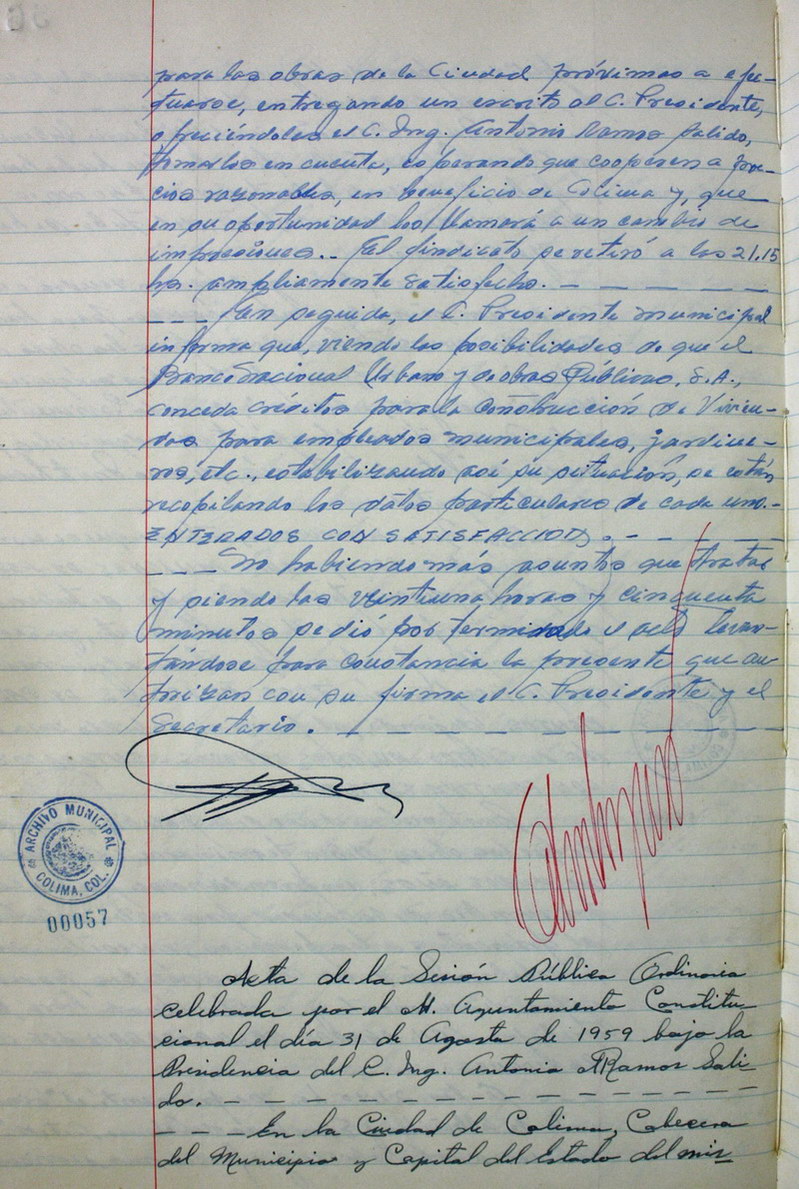 para las obras de la Ciudad próximas a efec-
tuarse, entregando un escrito al C. Presidente,
ofreciéndoles el C. Ing. Antonio Ramos Salido,
tomarlos en cuenta, esperando que cooperen a pre-
cios razonables, en beneficio de Colima y, que
en su oportunidad los llamará a un cambio de
impresiones.- El Sindicato se retiró a las 21.15
hs. ampliamente satisfecho. - - - - - -
- - - En seguida, el C. Presidente municipal
informa que, viendo las posibilidades de que el
Banco Nacional Urbano y de obras Públicas, S.A.,
conceda créditos para la construcción de Vivien-
das para empleados municipales, jardine-
ros, etc., estabilizando así su situación, se están
recopilando los datos particulares de cada uno.-
ENTERADOS CON SATISFACCION. - - - - -
- - - No habiendo más asuntos que tratar
y siendo las veintiuna horas y cincuenta
minutos se dió por terminado el acto levan-
tándose para constancia la presente que au
torizan con su firma el C. Presidente y el
Secretario. - - - - - - - - -
ARCHIVO MUNICIPAL
COLIMA, COL.
00057
Acta de la Sesión Pública Ordinaria
celebrada por el H. Ayuntamiento Constitu
cional el día 31 de Agosto de 1959 bajo la
Presidencia del C. Ing. Antonio Ramos Sali-
do. - - - - - - - - - - - - -
- - - En la Ciudad de Colima, Cabecera
del Municipio y Capital del Estado del mis